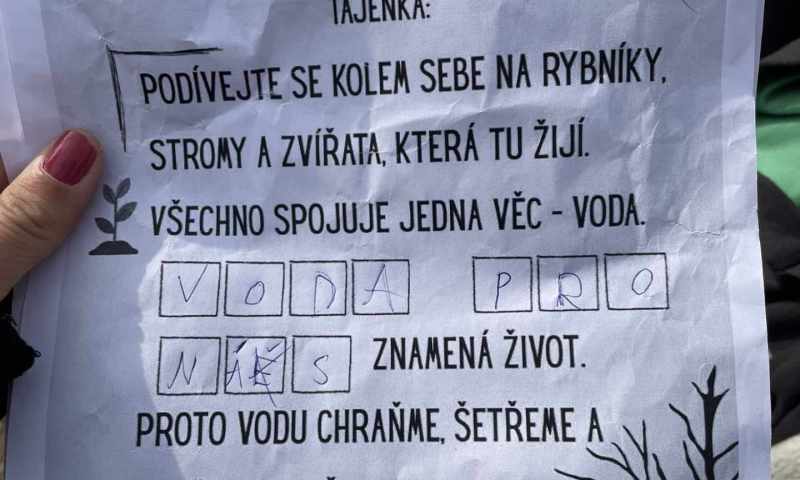 TAJENKA:
PODÍVEJTE SE KOLEM SEBE NA RYBNÍKY,
STROMY A ZVÍŘATA, KTERÁ TU ŽIJÍ.
VŠECHNO SPOJUJE JEDNA VĚC - VODA.
VODA PRO
NÁS ZNAMENÁ ŽIVOT.
PROTO VODU CHRAŇME, ŠETŘEME A